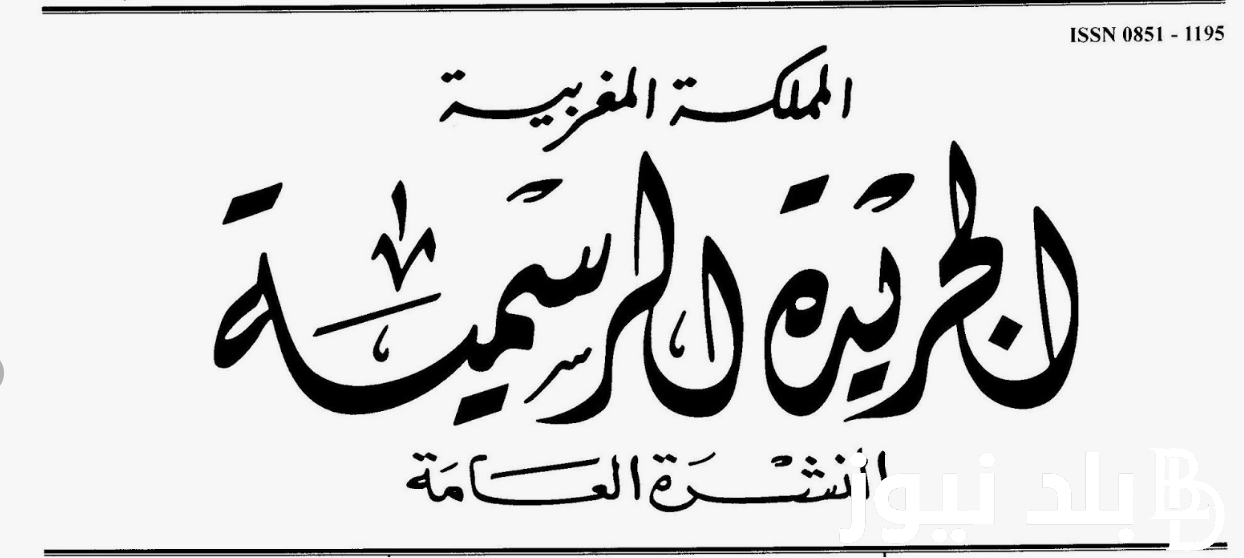 ISSN 0851 - 1195
المملكة المغربية
الجريدة الرسمية
النشرة العامة
بلد نيوز